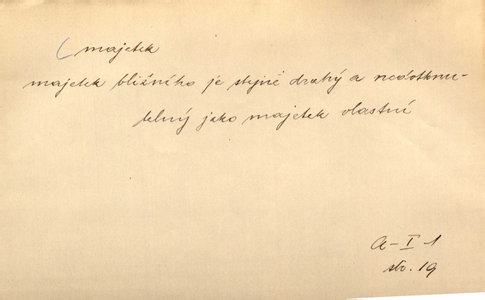 majetek
majetek bližního je stejně drahý a nedotknu-
telný jako majetek vlastní
A-I 1
str. 19